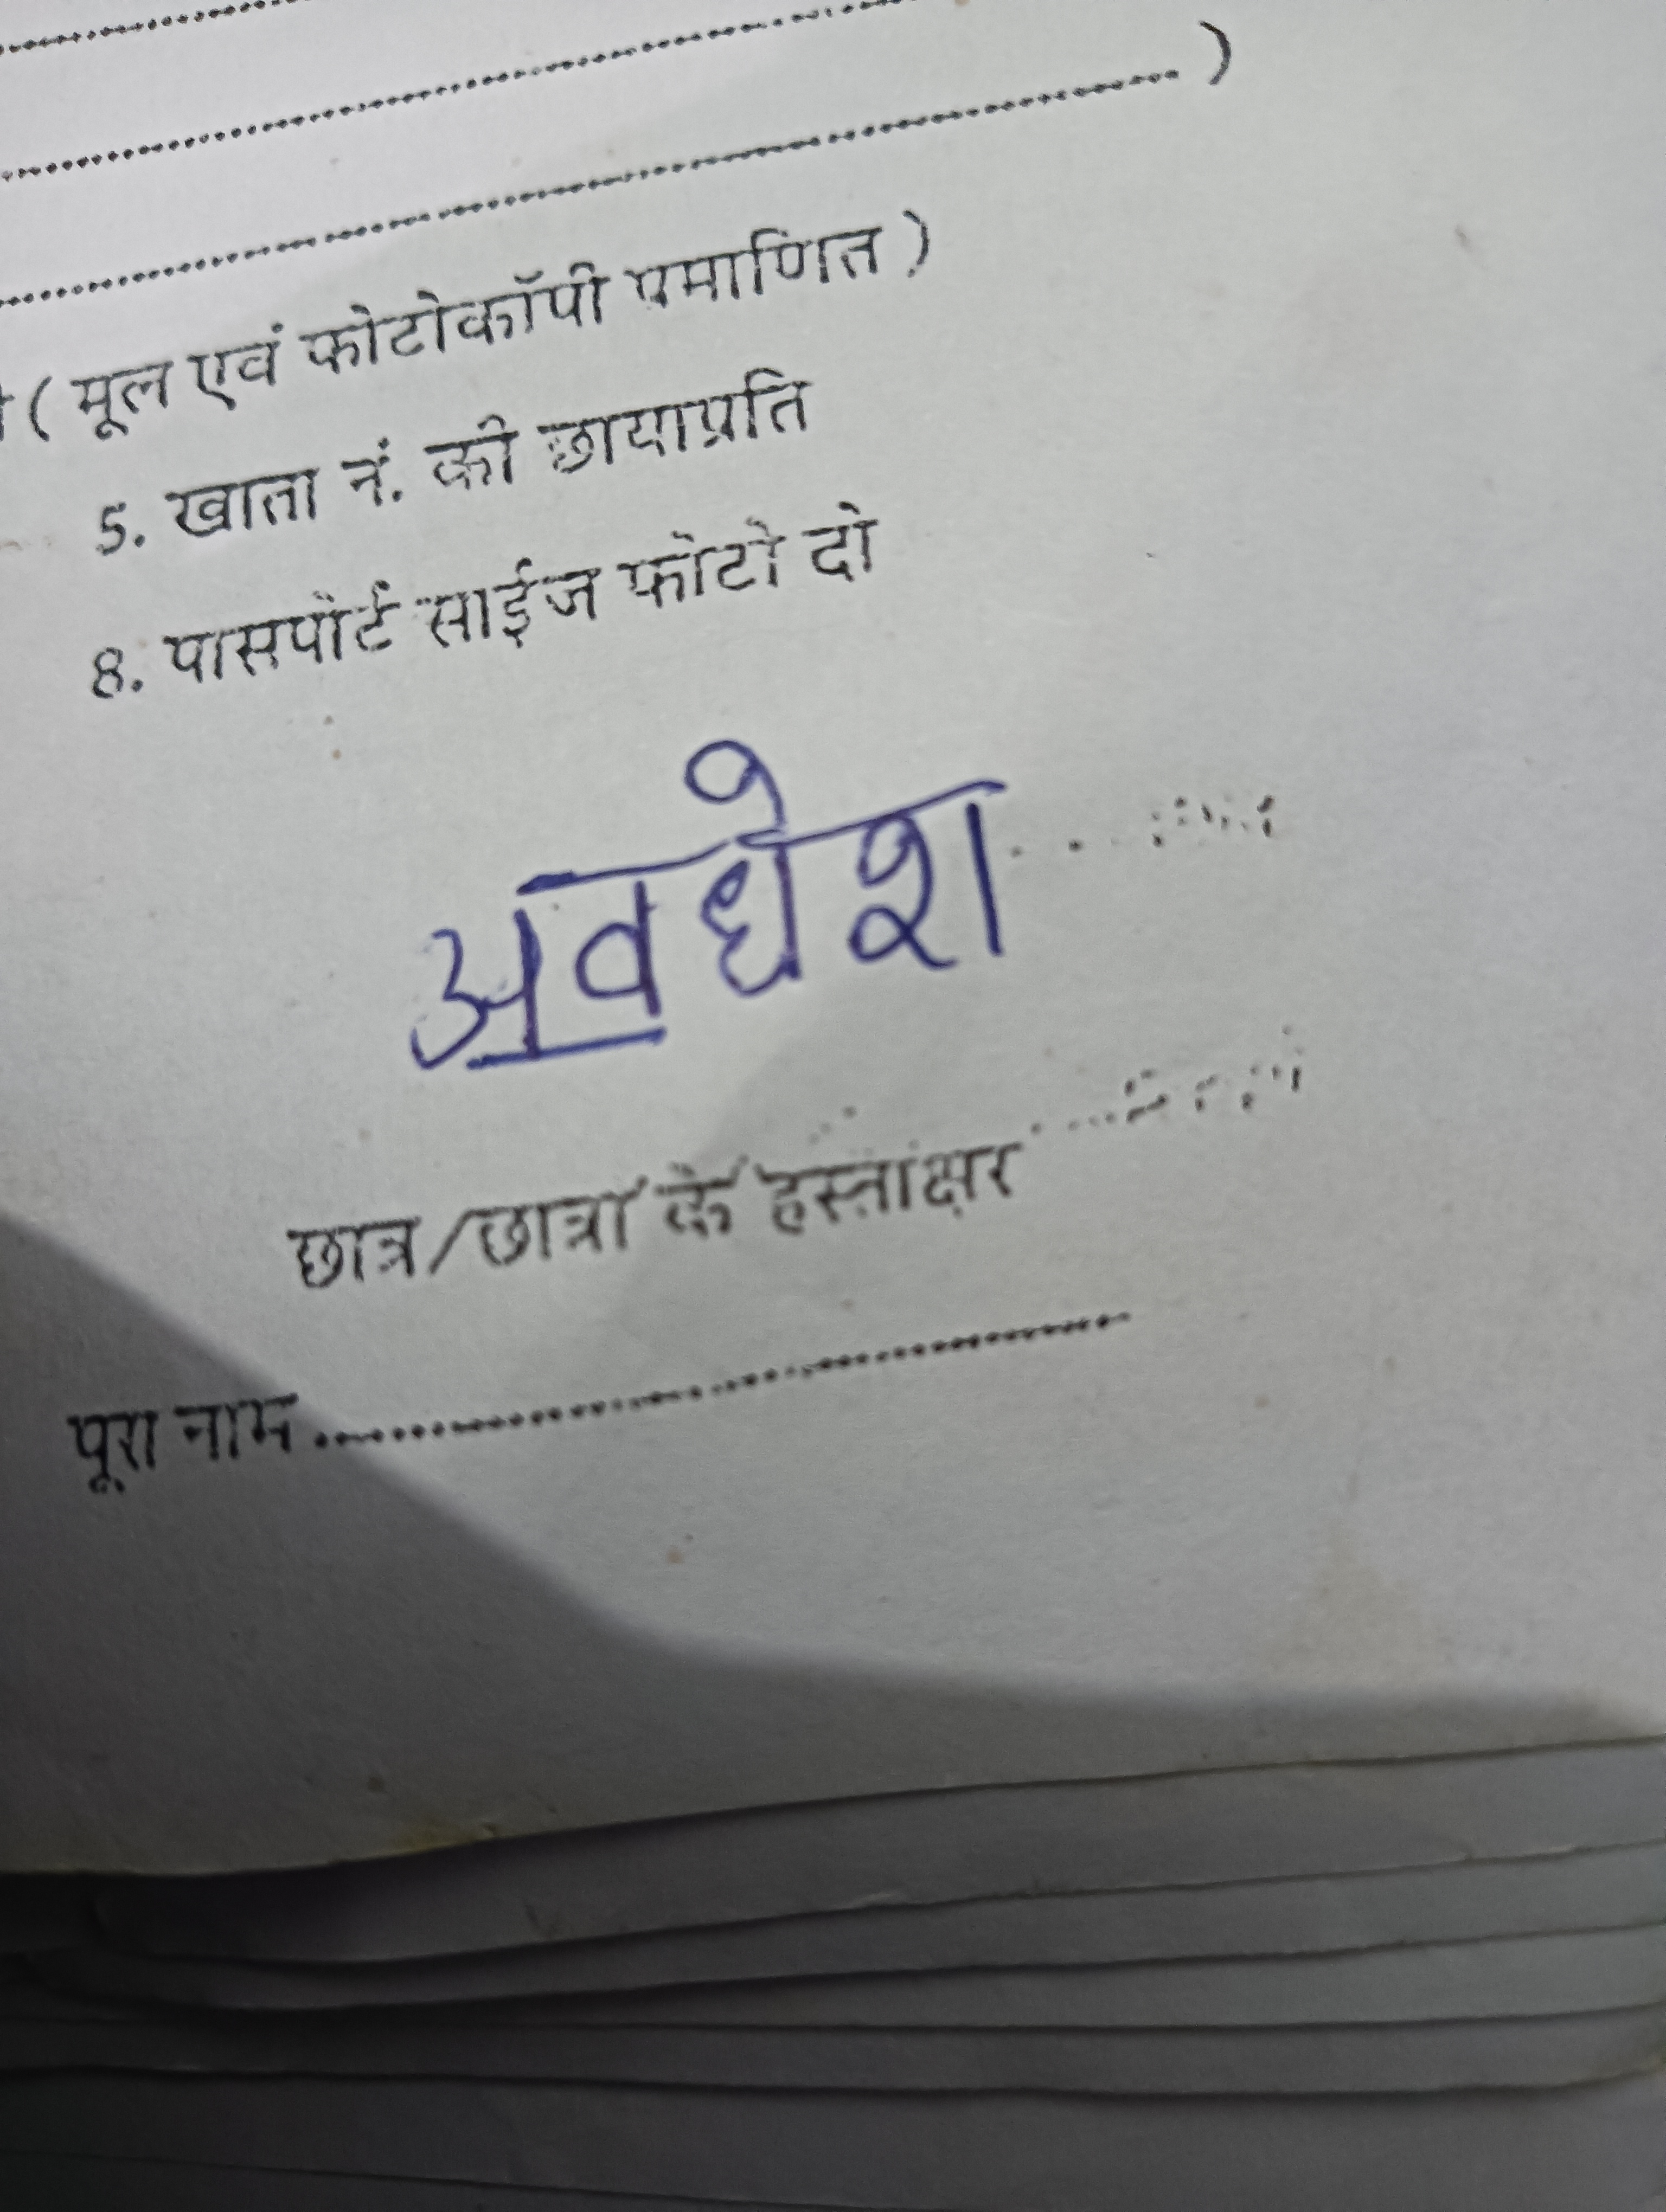 )
( मूल एवं फोटोकॉपी प्रमाणित )
5. खाता नं. की छायाप्रति
8. पासपोर्ट साईज फोटो दो
अवधेश
छात्र/छात्रा के हस्ताक्षर
पूरा नाम